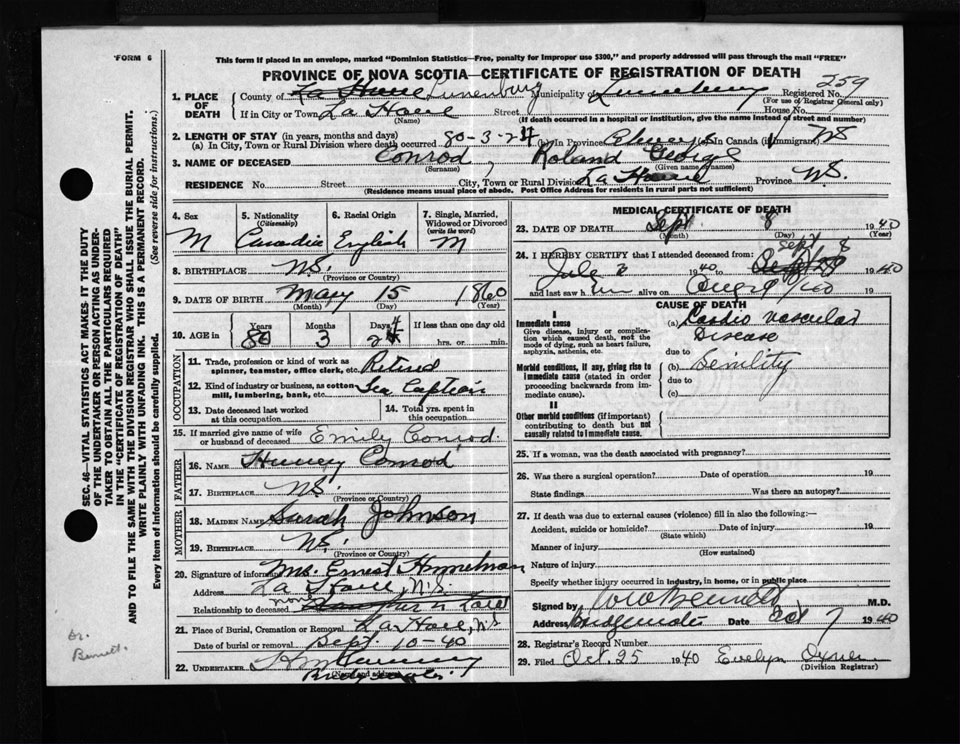 FORM 6
This form if placed in an envelope, marked "Dominion Statistics—Free, penalty for improper use $300," and properly addressed will pass through the mail "FREE"
PROVINCE OF NOVA SCOTIA—CERTIFICATE OF REGISTRATION OF DEATH
259
1. PLACE OF DEATH
County of La Have Lunenburg Municipality of Lunenburg Registered No.
(For use of Registrar General only)
If in City or Town La Have Street House No.
(Name) (If death occurred in a hospital or institution, give the name instead of street and number)
2. LENGTH OF STAY (in years, months and days)
(a) In City, Town or Rural Division where death occurred 80-3-24 (b) In Province Always (c) In Canada (if immigrant) NS
3. NAME OF DECEASED Conrod, Roland George
(Surname) (Given name or names)
RESIDENCE No. Street City, Town or Rural Division La Have Province N.S.
(Residence means usual place of abode. Post Office Address for residents in rural parts not sufficient)
4. Sex M
5. Nationality (Citizenship)
6. Racial Origin English
7. Single, Married, Widowed or Divorced (write the word) M
8. BIRTHPLACE N.S.
(Province or Country)
9. DATE OF BIRTH May 15 1860
(Month) (Day) (Year)
10. AGE in Years 80 Months 3 Days 24 If less than one day old hrs. or min.
OCCUPATION
11. Trade, profession or kind of work as spinner, teamster, office clerk, etc. Retired
12. Kind of industry or business, as cotton mill, lumbering, bank, etc. Sea Captain
13. Date deceased last worked at this occupation
14. Total yrs. spent in this occupation
15. If married give name of wife or husband of deceased Emily Conrod.
FATHER
16. Name Conrod
17. Birthplace N.S.
(Province or Country)
MOTHER
18. Maiden Name Sarah Johnson
19. Birthplace N.S.
(Province or Country)
20. Signature of informant Mrs. Ernest Himmelman
Address La Have, N.S.
Relationship to deceased none Daughter in Law
21. Place of Burial, Cremation or Removal La Have, N.S.
Date of burial or removal Sept 10-40
22. UNDERTAKER
(Name and address)
MEDICAL CERTIFICATE OF DEATH
23. DATE OF DEATH Sept 8 1940
(Month) (Day) (Year)
24. I HEREBY CERTIFY that I attended deceased from: Sept 8
1940 to 1940
and last saw h alive on
CAUSE OF DEATH
I
Immediate cause
Give disease, injury or complication which caused death, not the mode of dying, such as heart failure, asphyxia, asthenia, etc.
(a) Cardio vascular Disease
due to
Morbid conditions, if any, giving rise to immediate cause (stated in order proceeding backwards from immediate cause).
(b) Senility
due to
(c)
II
Other morbid conditions (if important) contributing to death but not causally related to immediate cause.
25. If a woman, was the death associated with pregnancy?
26. Was there a surgical operation? Date of operation 19
State findings Was there an autopsy?
27. If death was due to external causes (violence) fill in also the following:—
Accident, suicide or homicide? Date of injury 19
(State which)
Manner of injury
(How sustained)
Nature of injury
Specify whether injury occurred in industry, in home, or in public place
Signed by M.D.
Address Date Oct 7 1940
28. Registrars Record Number
29. Filed Oct. 25 1940 Evelyn Oxner
(Division Registrar)
SEC. 46—VITAL STATISTICS ACT MAKES IT THE DUTY OF THE UNDERTAKER OR PERSON ACTING AS UNDERTAKER TO OBTAIN ALL THE PARTICULARS REQUIRED IN THE "CERTIFICATE OF REGISTRATION OF DEATH"
AND TO FILE THE SAME WITH THE DIVISION REGISTRAR WHO SHALL ISSUE THE BURIAL PERMIT.
WRITE PLAINLY WITH UNFADING INK. THIS IS A PERMANENT RECORD.
Every item of information should be carefully supplied. (See reverse side for instructions.)
Dr.